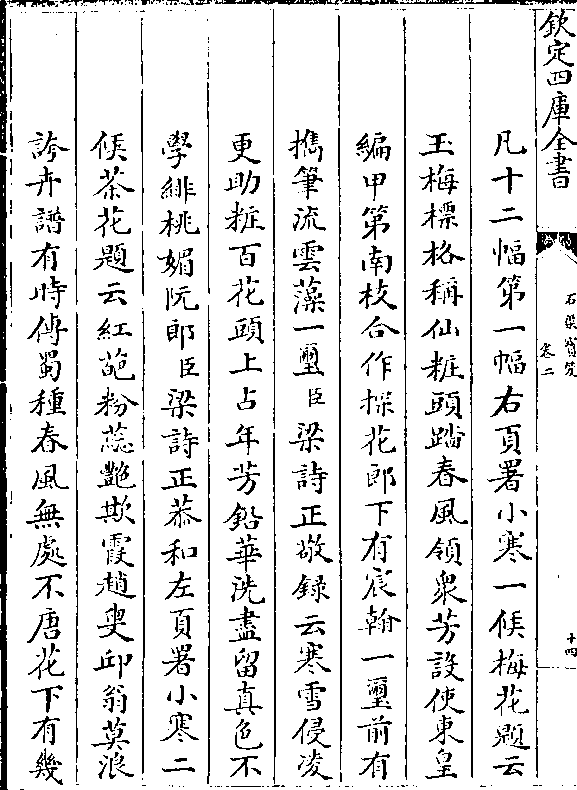 欽定四庫全書
石渠寳笈
卷二
十四
凡十二幅第一幅右頁署小寒一候梅花題云
玉梅標格稱仙粧頭踏春風領衆芳設使東皇
編甲第南枝合作探花郎下有宸翰一璽前有
擕筆流雲藻一璽臣梁詩正敬録云寒雪侵凌
更助粧百花頭上占年芳鉛華洗盡留真色不
學緋桃媚阮郎臣梁詩正恭和左頁署小寒二
候茶花題云紅葩粉蕊艷欺霞趙叟邱翁莫浪
誇卉譜有時傳蜀種春風無處不唐花下有幾